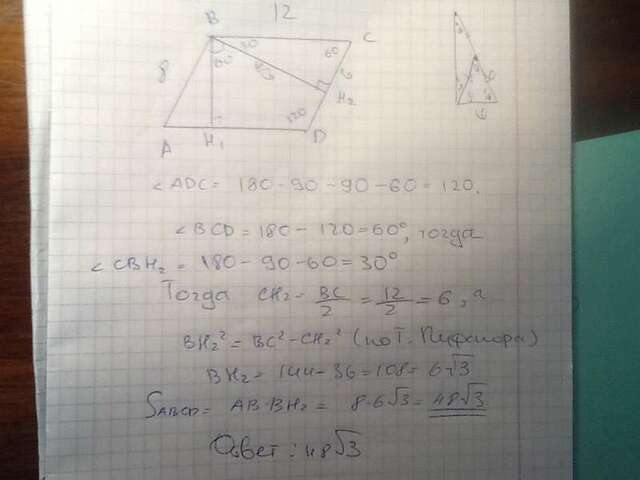 12
B
C
30
60
60
8
6
H₂
120
A
H₁
D
∠ADC = 180-90-90-60=120.
∠BCD = 180-120=60°, тогда
∠CBH₂ = 180-90-60=30°
Тогда CH₂ = BC/2 = 12/2 = 6, а
BH₂² = BC² - CH₂² (по Т. Пифагора)
BH₂ = 144-36=108= 6√3
SABCD = AB·BH₂ = 8·6√3 = 48√3
Ответ: 48√3